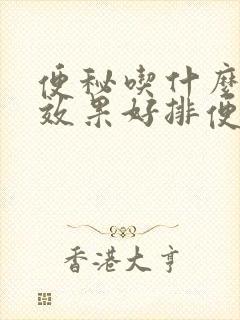 便秘喫什麽
效果好排便
香港大亨